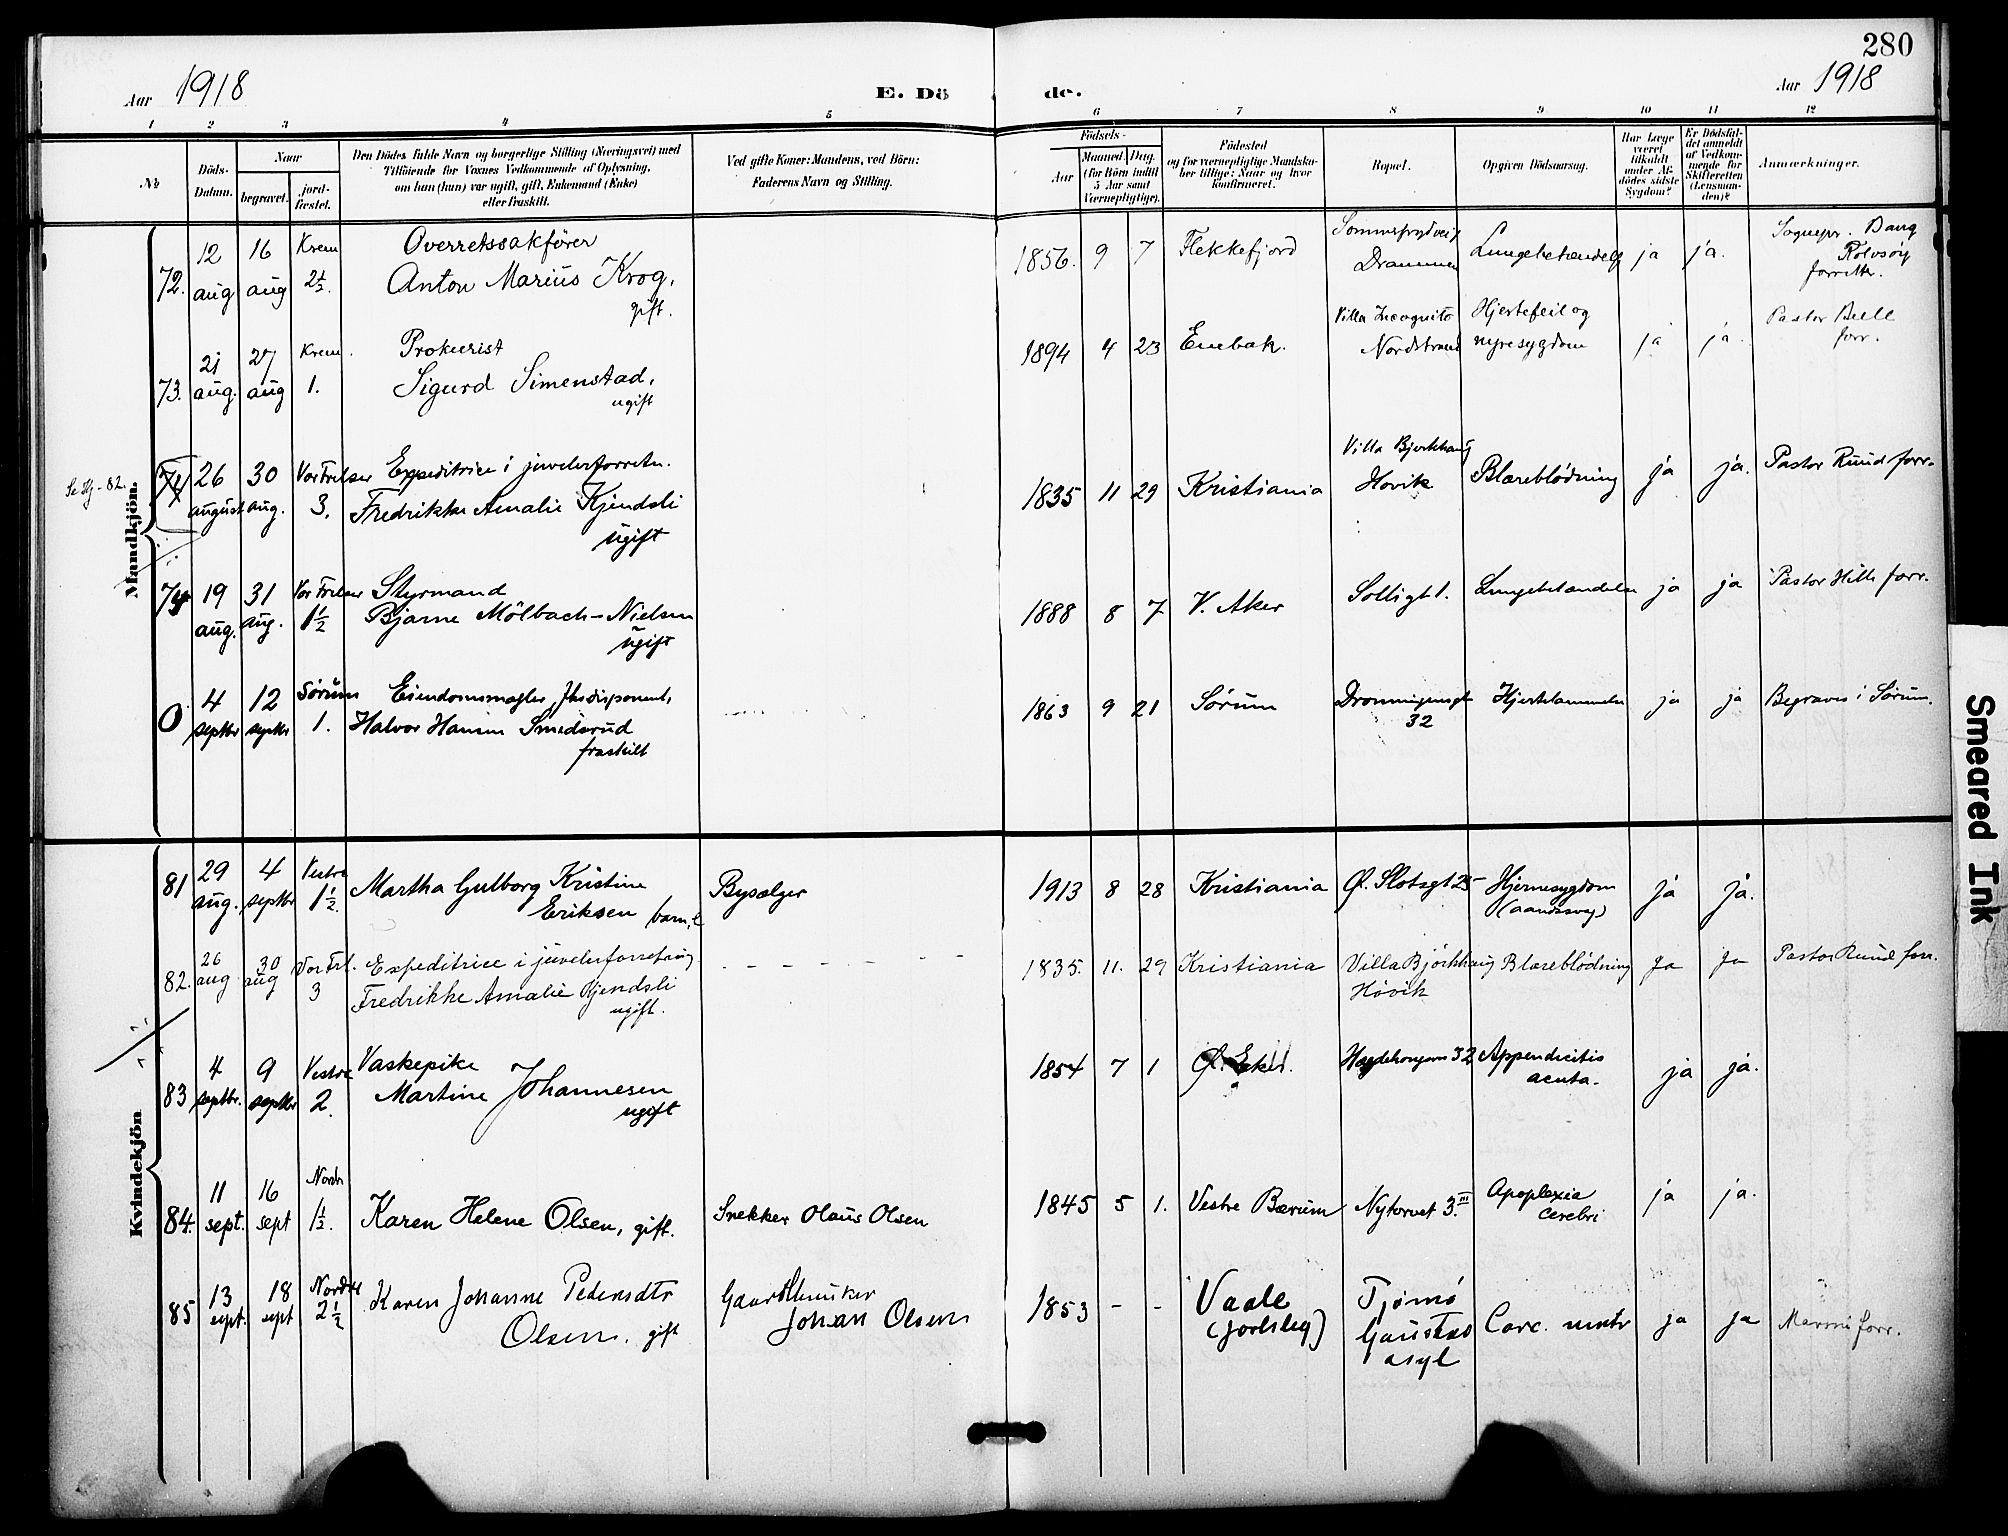 280
Aar 1918
E. Dö
de.
Aar 1918
1 2 3 4 5 6 7 8 9 10 11 12
№
Döds-Datum.
Naar
begravet.
jord-fæstet.
Den Dödes fulde Navn og borgerlige Stilling (Næringsvei) med
Tilföiende for Voxnes Vedkommende af Oplysning,
om han (hun) var ugift, gift, Enkemand (Enke)
eller fraskilt.
Ved gifte Koner: Mandens, ved Börn:
Faderens Navn og Stilling.
Födsels-
Aar
Maaned. Dag.
(for Börn indtil
5 Aar samt
Værnepligtige).
Födested
og for værnepligtige Mandska-
ber tillige: Naar og hvor
konfirmeret.
Bopæl.
Opgiven Dödsaarsag.
Har Læge
været
tilkaldt
under Af-
dödes sidste
Sygdom?
Er Dödsfal-
det anmeldt
af Vedkom-
mende for
Skifteretten
(Lensman-
den)?
Anmærkninger.
Mandkjön.
72. 12 aug 16 aug Krem 2½.
Overretssakfører
Anton Marius Krog,
gift.
1856. 9 7 Flekkefjord
Drammen
ja ja.
Sognepr. Bang
Rolvsøy
forrettr.
73. 21 aug. 27 aug Krem. 1.
Prokurist
Sigurd Simenstad,
ugift
1894 4 23 Enebak.
Villa Incognito
Nordstrand
Hjertefeil og
nyresygdom
ja ja.
Pastor Bull
forr.
74 26 august 30 aug. Vor Frelser 3.
Expeditrice i juvelerforretn.
Fredrikke Amalie Kjendsli
ugift
1835 11 29 Kristiania
Villa Bjerkhaug
Hovik
Blæreblödning
ja ja.
Pastor Ruud forr.
74 19 aug. 31 aug. Vor Frelser 1½
Styrmand
Bjarne Mölbach-Nielsen
ugift
1888 8 7 V. Aker
Solligt 1.
Lungebetændelse
ja ja
Pastor Hille forr.
0 4 septbr 12 septbr Sørum 1.
Eiendomsmægler,
Halvor Hansen Smedsrud
fraskilt
1863 9 21 Sørum
Dronningensgt
32
ja ja
Begraves i Sørum.
Kvindekjön
81 29 aug. 4 septbr Vestre 1½.
Martha Gulborg Kristine
Eriksen barn,
Bysælger
1913 8 28 Kristiania
Ø. Slotsgt 25
Hjernesygdom
ja ja.
82. 26 aug 30 aug Vor Frl. 3
Expeditrice i juvelerforretning
Fredrikke Amalie Kjendsli
ugift.
1835. 11. 29 Kristiania
Villa Bjørkhaug
Hövik
Blæreblödning
ja ja
Pastor Ruud forr.
83 4 septbr. 9 septbr Vestre 2.
Vaskepike
Martine Johannesen
ugift
1854 7 1 Ø. Eker.
Hegdehaugsvn 32
Appendicitis
acuta.
ja ja.
84. 11 sept. 16 sept Nordr 1½.
Karen Helene Olsen, gift.
Snekker Olaus Olsen
1845 5 1. Vestre Bærum
Nytorvet 3.III
Apoplexia
cerebri
ja ja.
85 13 sept. 18 sept Nordre 2½
Karen Johanne Pedersdtr
Olsen. gift
Gaardbruker
Johan Olsen
1853 - - Vaale
Tjømø
Gaustad
asyl
Carc. uteri
ja ja
forr.
Smeared Ink